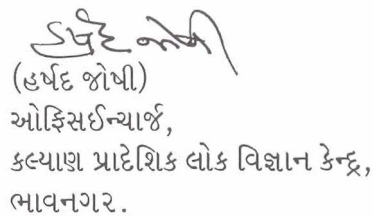 હર્ષદ જોષી
(હર્ષદ જોષી)
ઓફિસઈન્ચાર્જ,
કલ્યાણ પ્રાદેશિક લોક વિજ્ઞાન કેન્દ્ર,
ભાવનગર.